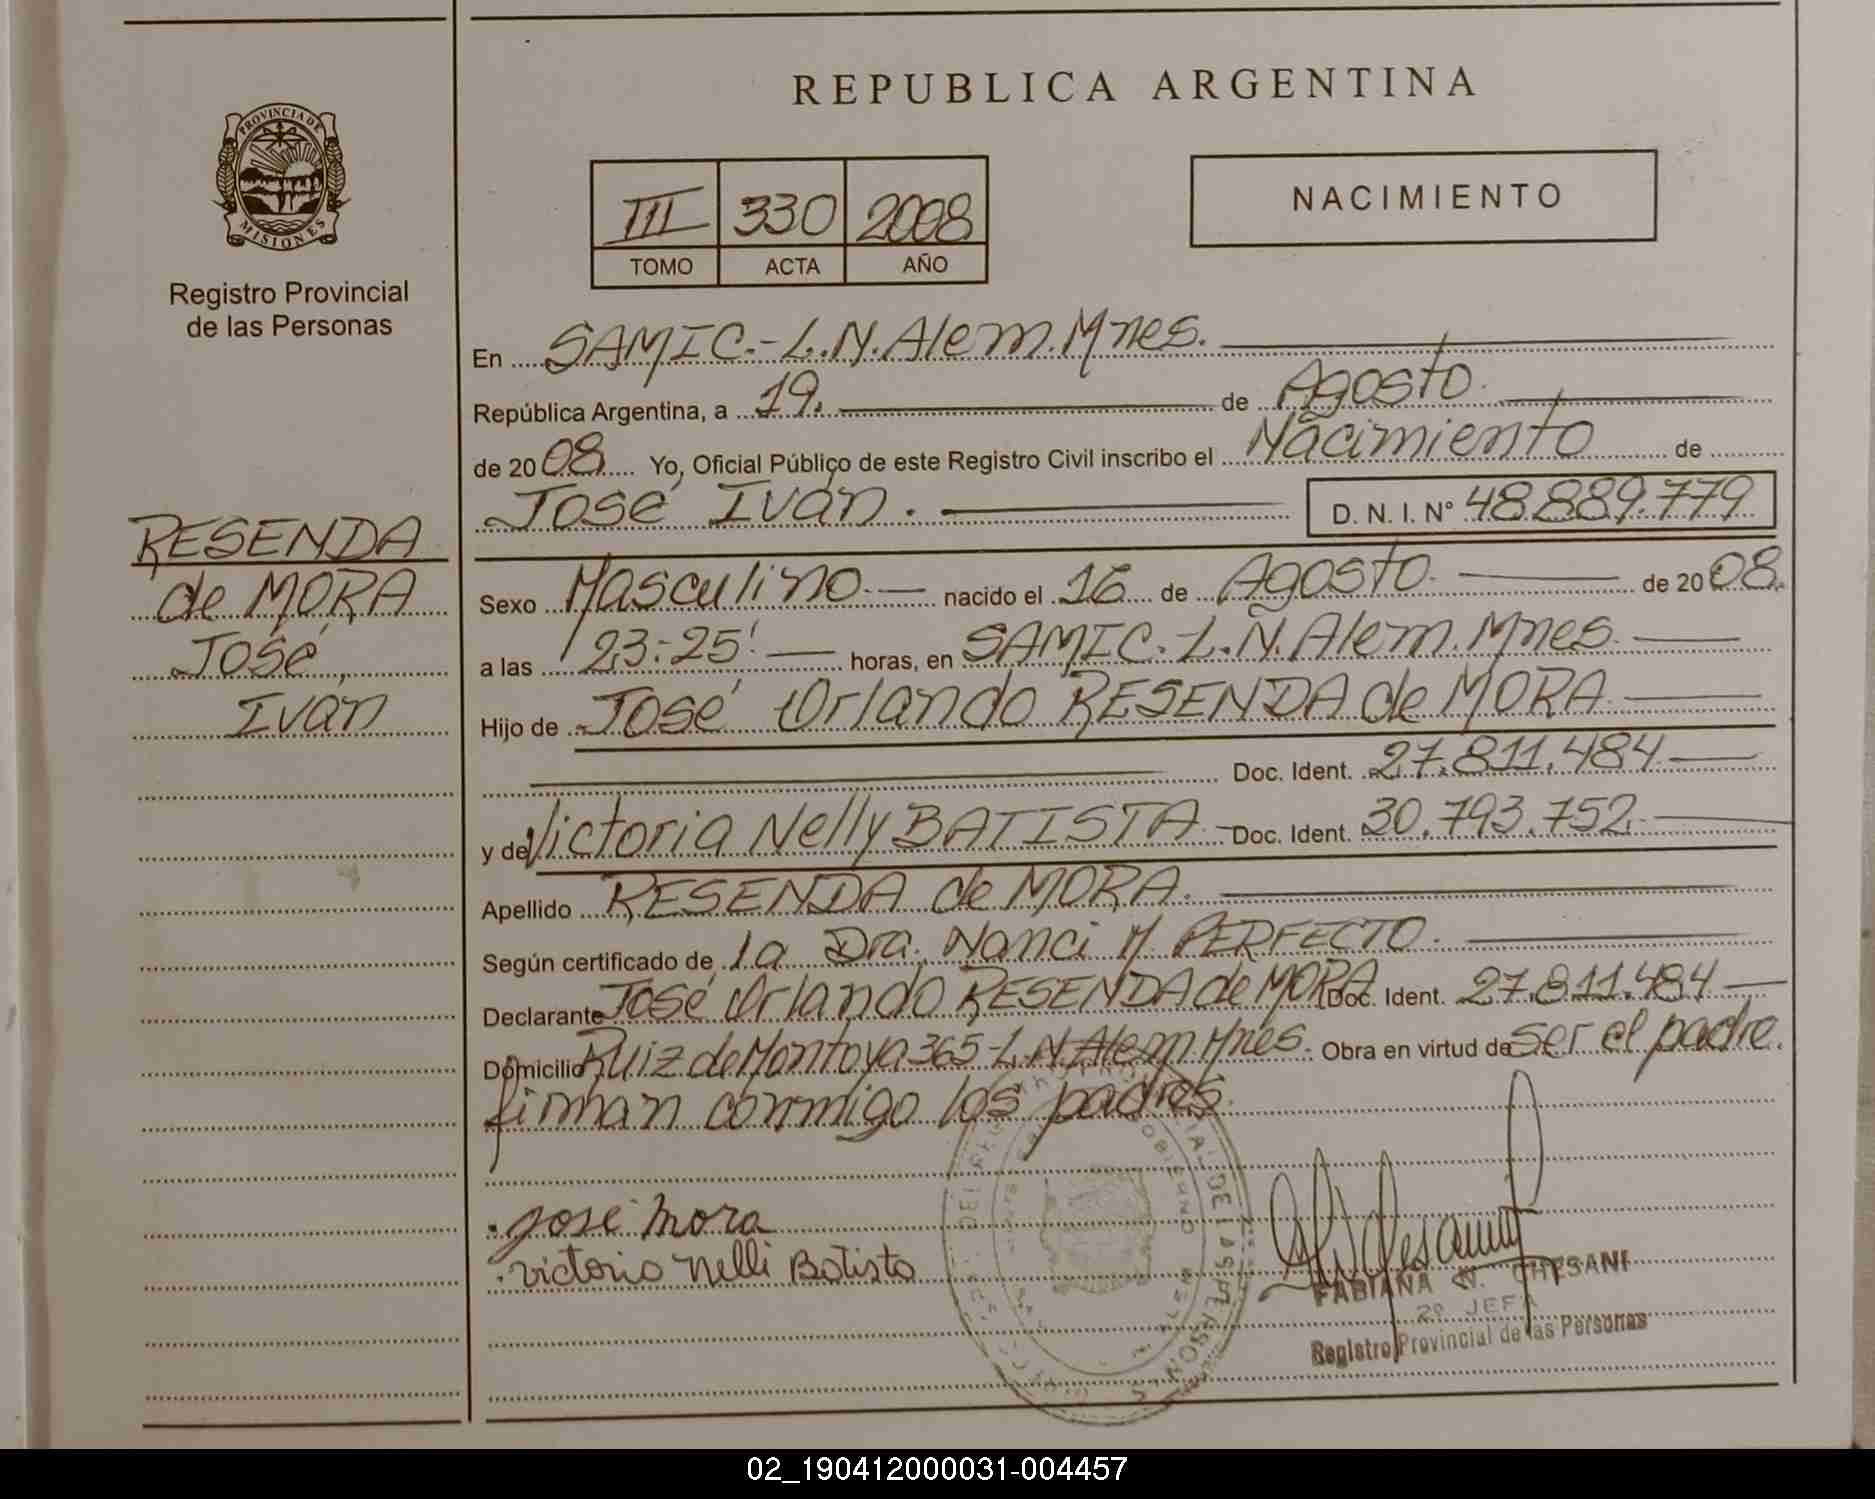 REPUBLICA ARGENTINA
PROVINCIA DE
MISIONES
Registro Provincial
de las Personas
III 330 2008
TOMO ACTA AÑO
NACIMIENTO
En SAMIC.-L.N.Alem.Mnes.
República Argentina, a 19. de Agosto.
de 2008 Yo, Oficial Público de este Registro Civil inscribo el Nacimiento de
José Iván. D. N. I. Nº 48.889.779
RESENDA
de MORA
José
Iván
Sexo Masculino.- nacido el 16 de Agosto. de 2008.
a las 23:25' horas, en SAMIC.L.N.Alem.Mnes.
Hijo de José Orlando RESENDA de MORA.
Doc. Ident. 27.811.484
y de Victoria Nelly BATISTA.- Doc. Ident. 30.793.752.
Apellido RESENDA de MORA.
Según certificado de la Dra. Nanci M. PERFECTO.
Declarante José Orlando RESENDA de MORA Doc. Ident. 27.811.484
Domicilio Ruiz de Montoya 365-L.N.Alem Mnes. Obra en virtud de ser el padre.
firman conmigo los padres.
Jose Mora
victoria nelli Batista
FABIANA N. CHESANI
2º JEFA
Registro Provincial de las Personas
02_190412000031-004457